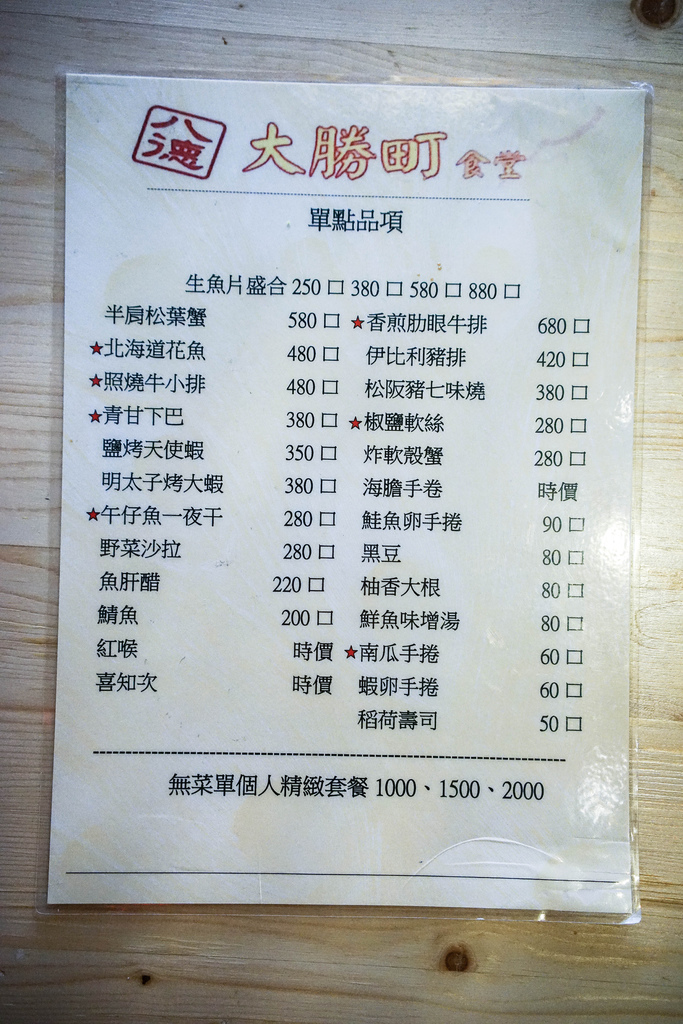 八德 大勝町 食堂
單點品項
生魚片盛合 250 口 380 口 580 口 880 口
半肩松葉蟹 580 口
★北海道花魚 480 口
★照燒牛小排 480 口
★青甘下巴 380 口
鹽烤天使蝦 350 口
明太子烤大蝦 380 口
★午仔魚一夜干 280 口
野菜沙拉 280 口
魚肝醋 220 口
鯖魚 200 口
紅喉 時價
喜知次 時價
★香煎肋眼牛排 680 口
伊比利豬排 420 口
松阪豬七味燒 380 口
★椒鹽軟絲 280 口
炸軟殼蟹 280 口
海膽手卷 時價
鮭魚卵手捲 90 口
黑豆 80 口
柚香大根 80 口
鮮魚味增湯 80 口
★南瓜手捲 60 口
蝦卵手捲 60 口
稻荷壽司 50 口
無菜單個人精緻套餐 1000、1500、2000